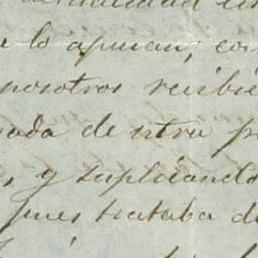 lo apuran, con
nosotros recibie
ada de ntra p
y suplicando
pues trataba de